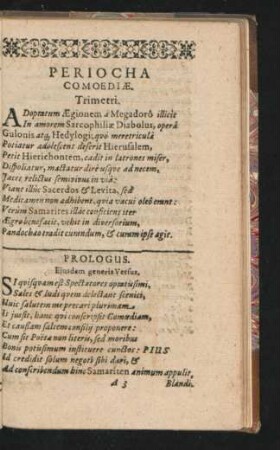 PERIOCHA
COMOEDIÆ.
Trimetri.
ADoptatum Ægionem à Megadorô illicit
In amorem Sarcophiliæ Diabolus, operâ
Gulonis, atq; Hedylogi, quò meretriculâ
Potiatur adolescens deserit Hierusalem,
Petit Hierichontem, cadit in latrones miser,
Dispoliatur, mactatur diréusque ad necem,
Jacet relictus semivivus in viâ:
Viant illic Sacerdos & Levita, sed
Medicamen non adhibent, quia vacui oleô erunt:
Verùm Samarites illac conficiens iter
Ægro benefacit, vehit in diversorium,
Pandochæo tradit curandum, & curum ipse agit.
PROLOGUS.
Ejusdem generis Versus.
SI quisquam est Spectatores optatissimi,
Sales & ludi quem delectant scenici,
Huic salutem me precari plurimam
Is jussit, hanc qui conscripsit Comœdiam,
Et causam salcem consilij proponere:
Cum sit Poëta non literis, sed moribus
Bonis potissimùm instituere cunctos: PIUS
Id credidit solum negotî sibi dari, &
Ad conscribendum hinc Samariten animum appulit,
A 3 Blandi-